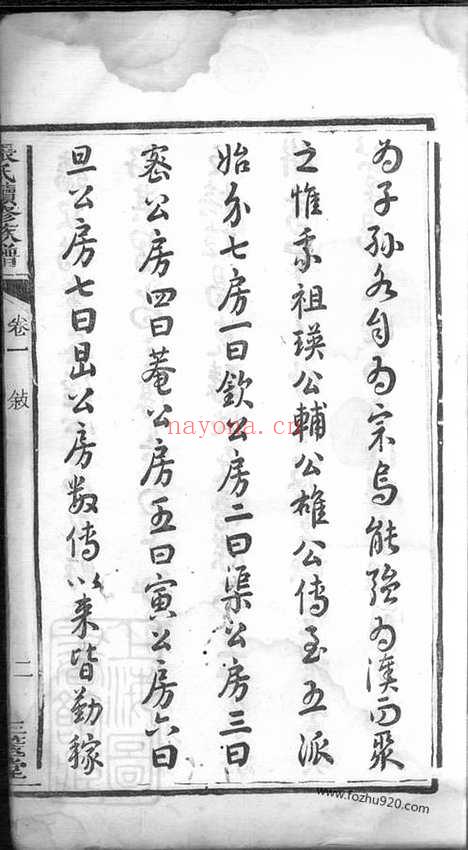 為子孫各自為宗烏能強為渙而聚
之惟吾祖瑛公輔公雄公傳至五派
始分七房一曰欽公房二曰渠公房三曰
密公房四曰菴公房五曰寅公房六曰
旦公房七曰昷公房数傳以来皆勤稼
張氏續修族譜
卷一 敘
二
nayona.cn
www.fozhu920.com